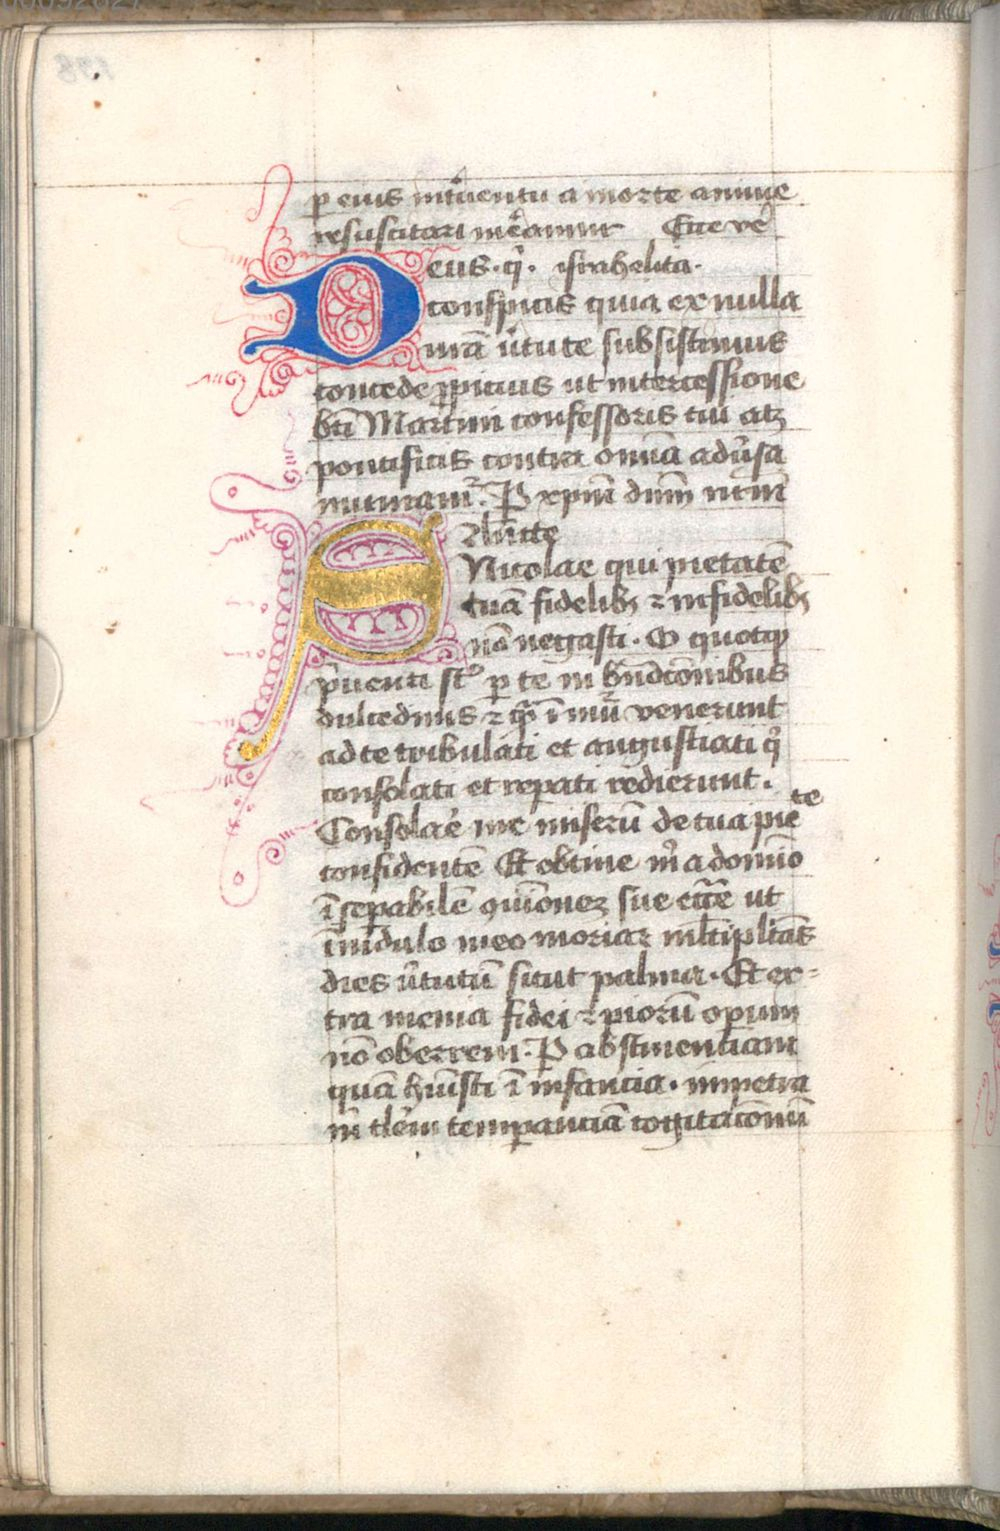 p eius int͛uentu a morte anime
resuscitari me͛amur Ecce ve͛
Deus · q͛ · israhelita ·
conspicis quia ex nulla
n̅ra̅ u͛tute subsistimus
concede ꝓpicius ut intercessione
bt̅i Martini confessoris tui atꝫ
pontificis contra om̅ia adu͛sa
muniam͛. P xp̅m dn̅m nr̅m
Sancte
Nicolae qui pietate̅
tua̅ fidelibꝫ ⁊ infidelibꝫ
no̅ negasti · O quotqꝫ
p͛uenti st͛ p te in bn̅dc̅onibus
dulcedinis
ad te tribulati et angustiati q͛
consolati et rep̱ati redierunt ·
Consolar͛e me miseru̅ de tua pie te
confidente̅ Et obtine m͛ a domi̅o
i̅sep̱abile̅ ꝯui̅oneꝫ sue ecc̅e ut
i̅ nidulo meo moriar ml̅tiplica̅s
dies u͛tutu̅ sicut palma · Et ex=
tra menia fidei ⁊ pioru̅ op̱um
no̅ oberrem · P abstinentiam
qua̅ h̅uisti i̅ infancia · impetra
m͛ temp̱ancia̅ cogitac̅onu̅